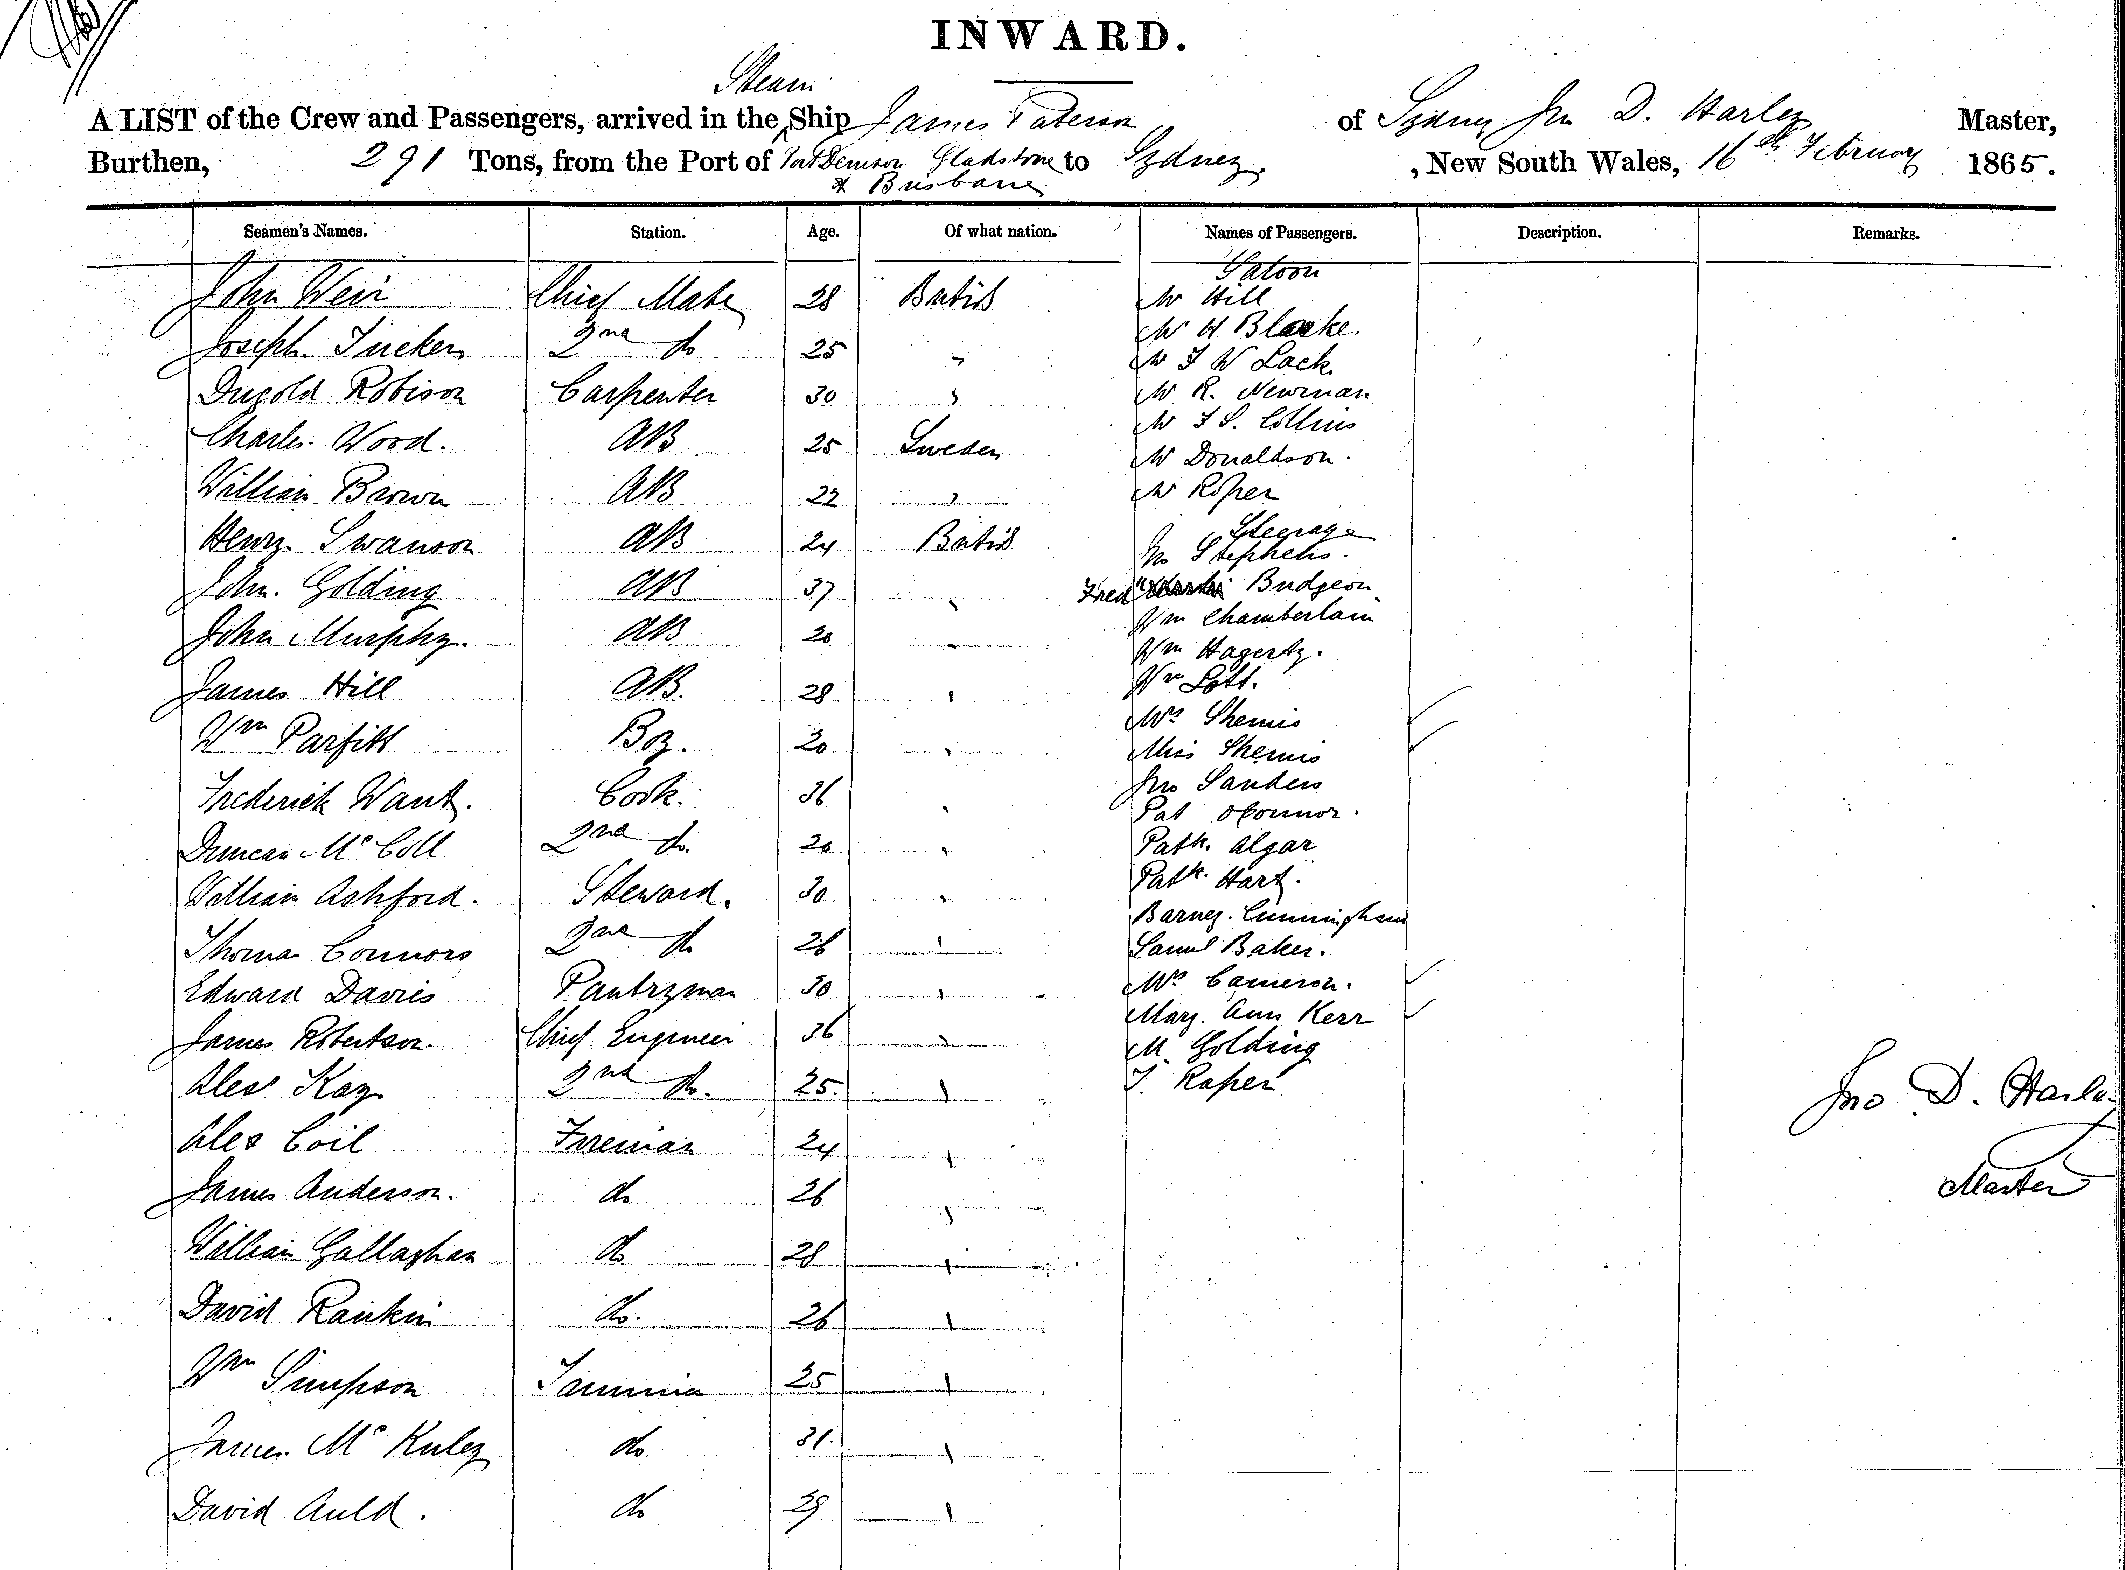 INWARD.
Steam
A LIST of the Crew and Passengers, arrived in the Ship James Paterson of Sydney Jno D. Harley Master,
Burthen, 291 Tons, from the Port of Port Denison Gladstone to Sydney, New South Wales, 16th February 1865.
& Brisbane
Seamen's Names. Station. Age. Of what nation. Names of Passengers. Description. Remarks.
Saloon
John Weir Chief Mate 28 British Mr Hill
Mr H Blacke.
Joseph Tucker 2nd do 25 " Mr J W Lack
Dugold Robison Carpenter 30 " Mr R. Newman
Mr J S. Collins
Charles Wood. AB 25 Sweden Mr Donaldson.
William Brown AB 22 " Mr Roper
Steerage
Henry Swanson AB 24 British Jno Stephens.
John. Golding AB 37 " Fred Budgeon
Wm Chamberlain
John Murphy. AB 20 " Wm Hagerty.
James Hill AB. 28 " Wm Lott.
Mrs Shemis
Wm Parfitt Boy. 20 " Miss Shemis
Frederick Want. Cook. 36 " Jno Sanders
Pat OConnor.
Duncan McColl 2nd do. 20 " Patk. Algar
William Ashford. Steward. 30 " Patk. Hart.
Barney. Cunningham
Thomas Connors 2nd do 26 " Saml Baker.
Edward Davies Pantryman 30 " Mrs Cameron.
James Robertson. Chief Engineer 36 " Mary Ann Kerr
M. Golding
Alex Kay 2nd do. 25 " J. Roper
Jno D. Harley
Alex Coil Fireman 24 "
James Anderson. do 26 " Master
William Gallaghan do 28 "
David Rankin do. 26 "
Wm Simpson Trimmer 25 "
James McKuley do 31. "
David Auld. do 29 "